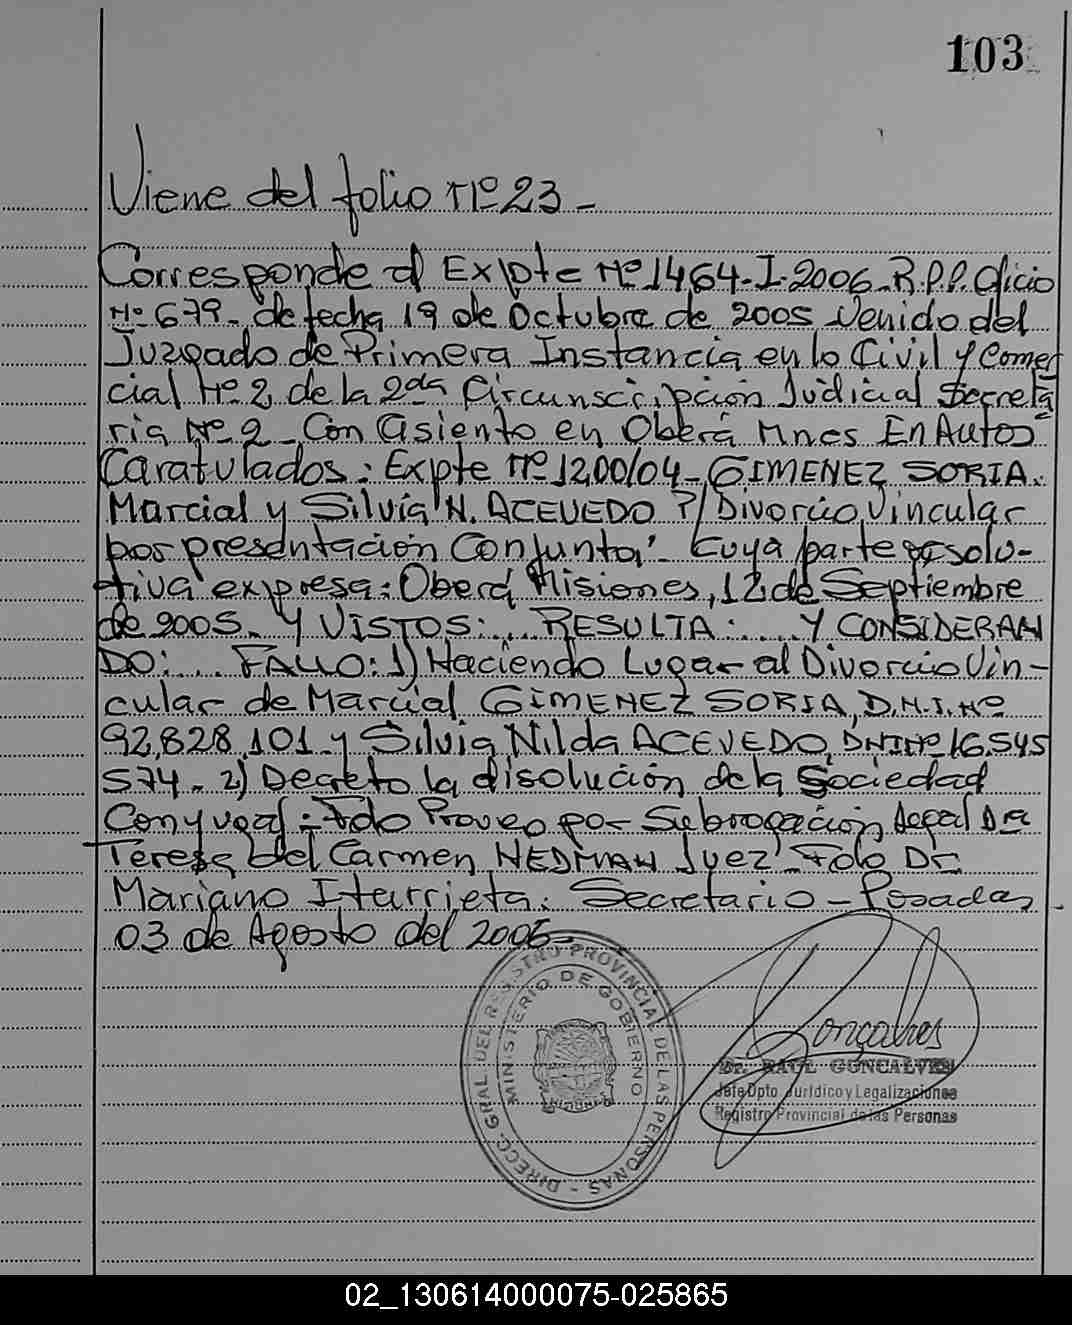 103
Viene del folio Nº 23 -
Corresponde al Expte Nº 1464-I-2006-R.P.P. Oficio
Nº 679- de fecha 19 de Octubre de 2005 Venido del
Juzgado de Primera Instancia en lo Civil y Comer
cial Nº 2 de la 2da Circunscripción Judicial Secreta
ria Nº 2 - Con asiento en Oberá Mnes En Autos
Caratulados: Expte Nº 1200/04- GIMENEZ SORIA.
Marcial y Silvia N. ACEVEDO P/ Divorcio Vincular
por presentación Conjunta". Cuya parte resolu-
tiva expresa: Oberá Misiones, 12 de Septiembre
de 2005. Y VISTOS:... RESULTA:.... Y CONSIDERAN
DO:... FALLO: 1) Haciendo Lugar al Divorcio Vin-
cular de Marcial GIMENEZ SORIA, D.N.I. Nº
92.828.101- y Silvia Nilda ACEVEDO, DNI Nº 16.545
574- 2) Decreto la disolución de la Sociedad
Conyugal - Fdo Proveo por Subrogación Legal Dra
Teresa del Carmen HEDMAN Juez Fdo Dr.
Mariano Iturrieta. Secretario - Posadas
03 de Agosto del 2006-
DIRECC. GRAL. DEL REGISTRO PROVINCIAL DE LAS PERSONAS -
MINISTERIO DE GOBIERNO
Gonçalves
Dr. RAUL GONCALVES
Jefe Dpto. Jurídico y Legalizaciones
Registro Provincial de las Personas
02_130614000075-025865